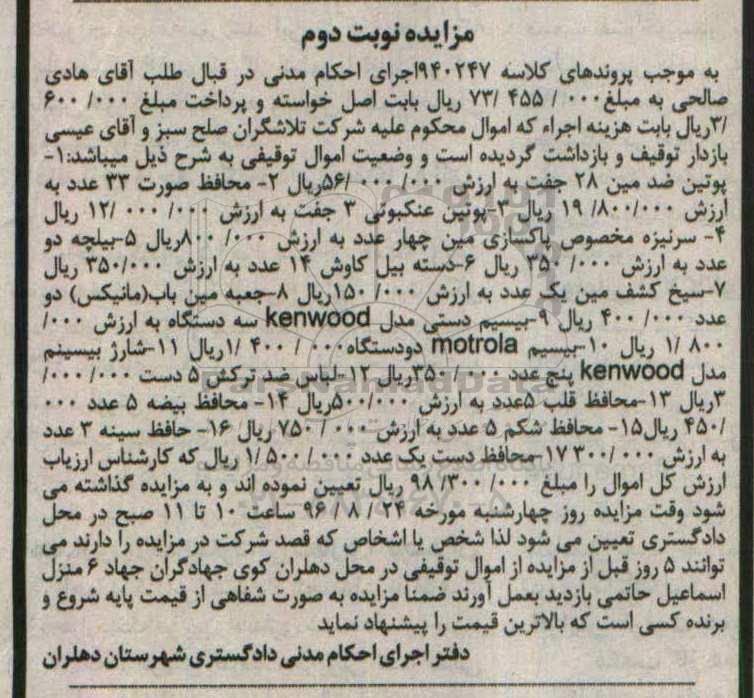 مزایده نوبت دوم
به موجب پروندهای کلاسه ۹۴۰۲۴۷اجرای احکام مدنی در قبال طلب آقای هادی
صالحی به مبلغ۰۰۰ / ۴۵۵ /۷۳ ریال بابت اصل خواسته و پرداخت مبلغ ۰۰۰/ ۶۰۰
/۳ریال بابت هزینه اجراء که اموال محکوم علیه شرکت تلاشگران صلح سبز و آقای عیسی
بازدار توقیف و بازداشت گردیده است و وضعیت اموال توقیفی به شرح ذیل میباشد:۱-
پوتین ضد مین ۲۸ جفت به ارزش ۰۰۰/ ۰۰۰ /۵۶ریال ۲- محافظ صورت ۳۳ عدد به
ارزش ۸۰۰/۰۰۰/ ۱۹ ریال ۳-پوتین عنکبوتی ۳ جفت به ارزش ۰۰۰/ ۰۰۰ /۱۲ ریال
۴- سرنیزه مخصوص پاکسازی مین چهار عدد به ارزش ۰۰۰/ ۸۰۰ریال ۵-بیلچه دو
عدد به ارزش ۰۰۰/ ۳۵۰ ریال ۶-دسته بیل کاوش ۱۴ عدد به ارزش ۳۵۰/۰۰۰ ریال
۷-سیخ کشف مین یک عدد به ارزش ۰۰۰/ ۱۵۰ریال ۸-جعبه مین باب(مانیکس) دو
عدد ۰۰۰/ ۴۰۰ ریال ۹-بیسیم دستی مدل kenwood سه دستگاه به ارزش ۰۰۰/
۸۰۰ /۱ ریال ۱۰-بیسیم motrola دودستگاه۰۰۰ / ۴۰۰ /۱ریال ۱۱-شارژ بیسینم
مدل kenwood پنج عدد ۰۰۰/ ۳۵۰ریال ۱۲-لباس ضد ترکش ۵ دست ۰۰۰/ ۰۰۰/
۳ریال ۱۳-محافظ قلب ۵عدد به ارزش ۵۰۰/۰۰۰ریال ۱۴- محافظ بیضه ۵ عدد ۰۰۰
/۴۵۰ ریال۱۵- محافظ شکم ۵ عدد به ارزش ۰۰۰/ ۷۵۰ ریال ۱۶- حافظ سینه ۳ عدد
به ارزش ۰۰۰/ ۳۰۰ ۱۷-محافظ دست یک عدد ۰۰۰/ ۵۰۰ /۱ ریال که کارشناس ارزیاب
ارزش کل اموال را مبلغ ۰۰۰/ ۳۰۰/ ۹۸ ریال تعیین نموده اند و به مزایده گذاشته می
شود وقت مزایده روز چهارشنبه مورخه ۲۴ / ۸/ ۹۶ ساعت ۱۰ تا ۱۱ صبح در محل
دادگستری تعیین می شود لذا شخص یا اشخاص که قصد شرکت در مزایده را دارند می
توانند ۵ روز قبل از مزایده از اموال توقیفی در محل دهلران کوی جهادگران جهاد ۶ منزل
اسماعیل حاتمی بازدید بعمل آورند ضمنا مزایده به صورت شفاهی از قیمت پایه شروع و
برنده کسی است که بالاترین قیمت را پیشنهاد نماید
دفتر اجرای احکام مدنی دادگستری شهرستان دهلران